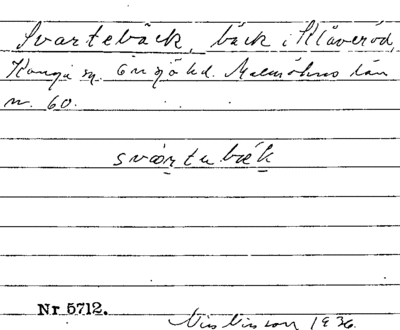 Svartebäck, bäck i Klåveröd,
Konga sn. Onsjö hd. Malmöhus län
nr. 60.
svartu bæk
Nr 5712.
Nils Nilsson 1936.